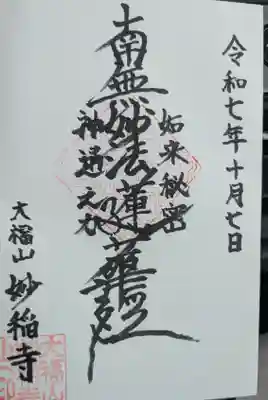 令和七年十月七日
如来秘密
南無妙法蓮華経
神通之力
大福山 妙稲寺